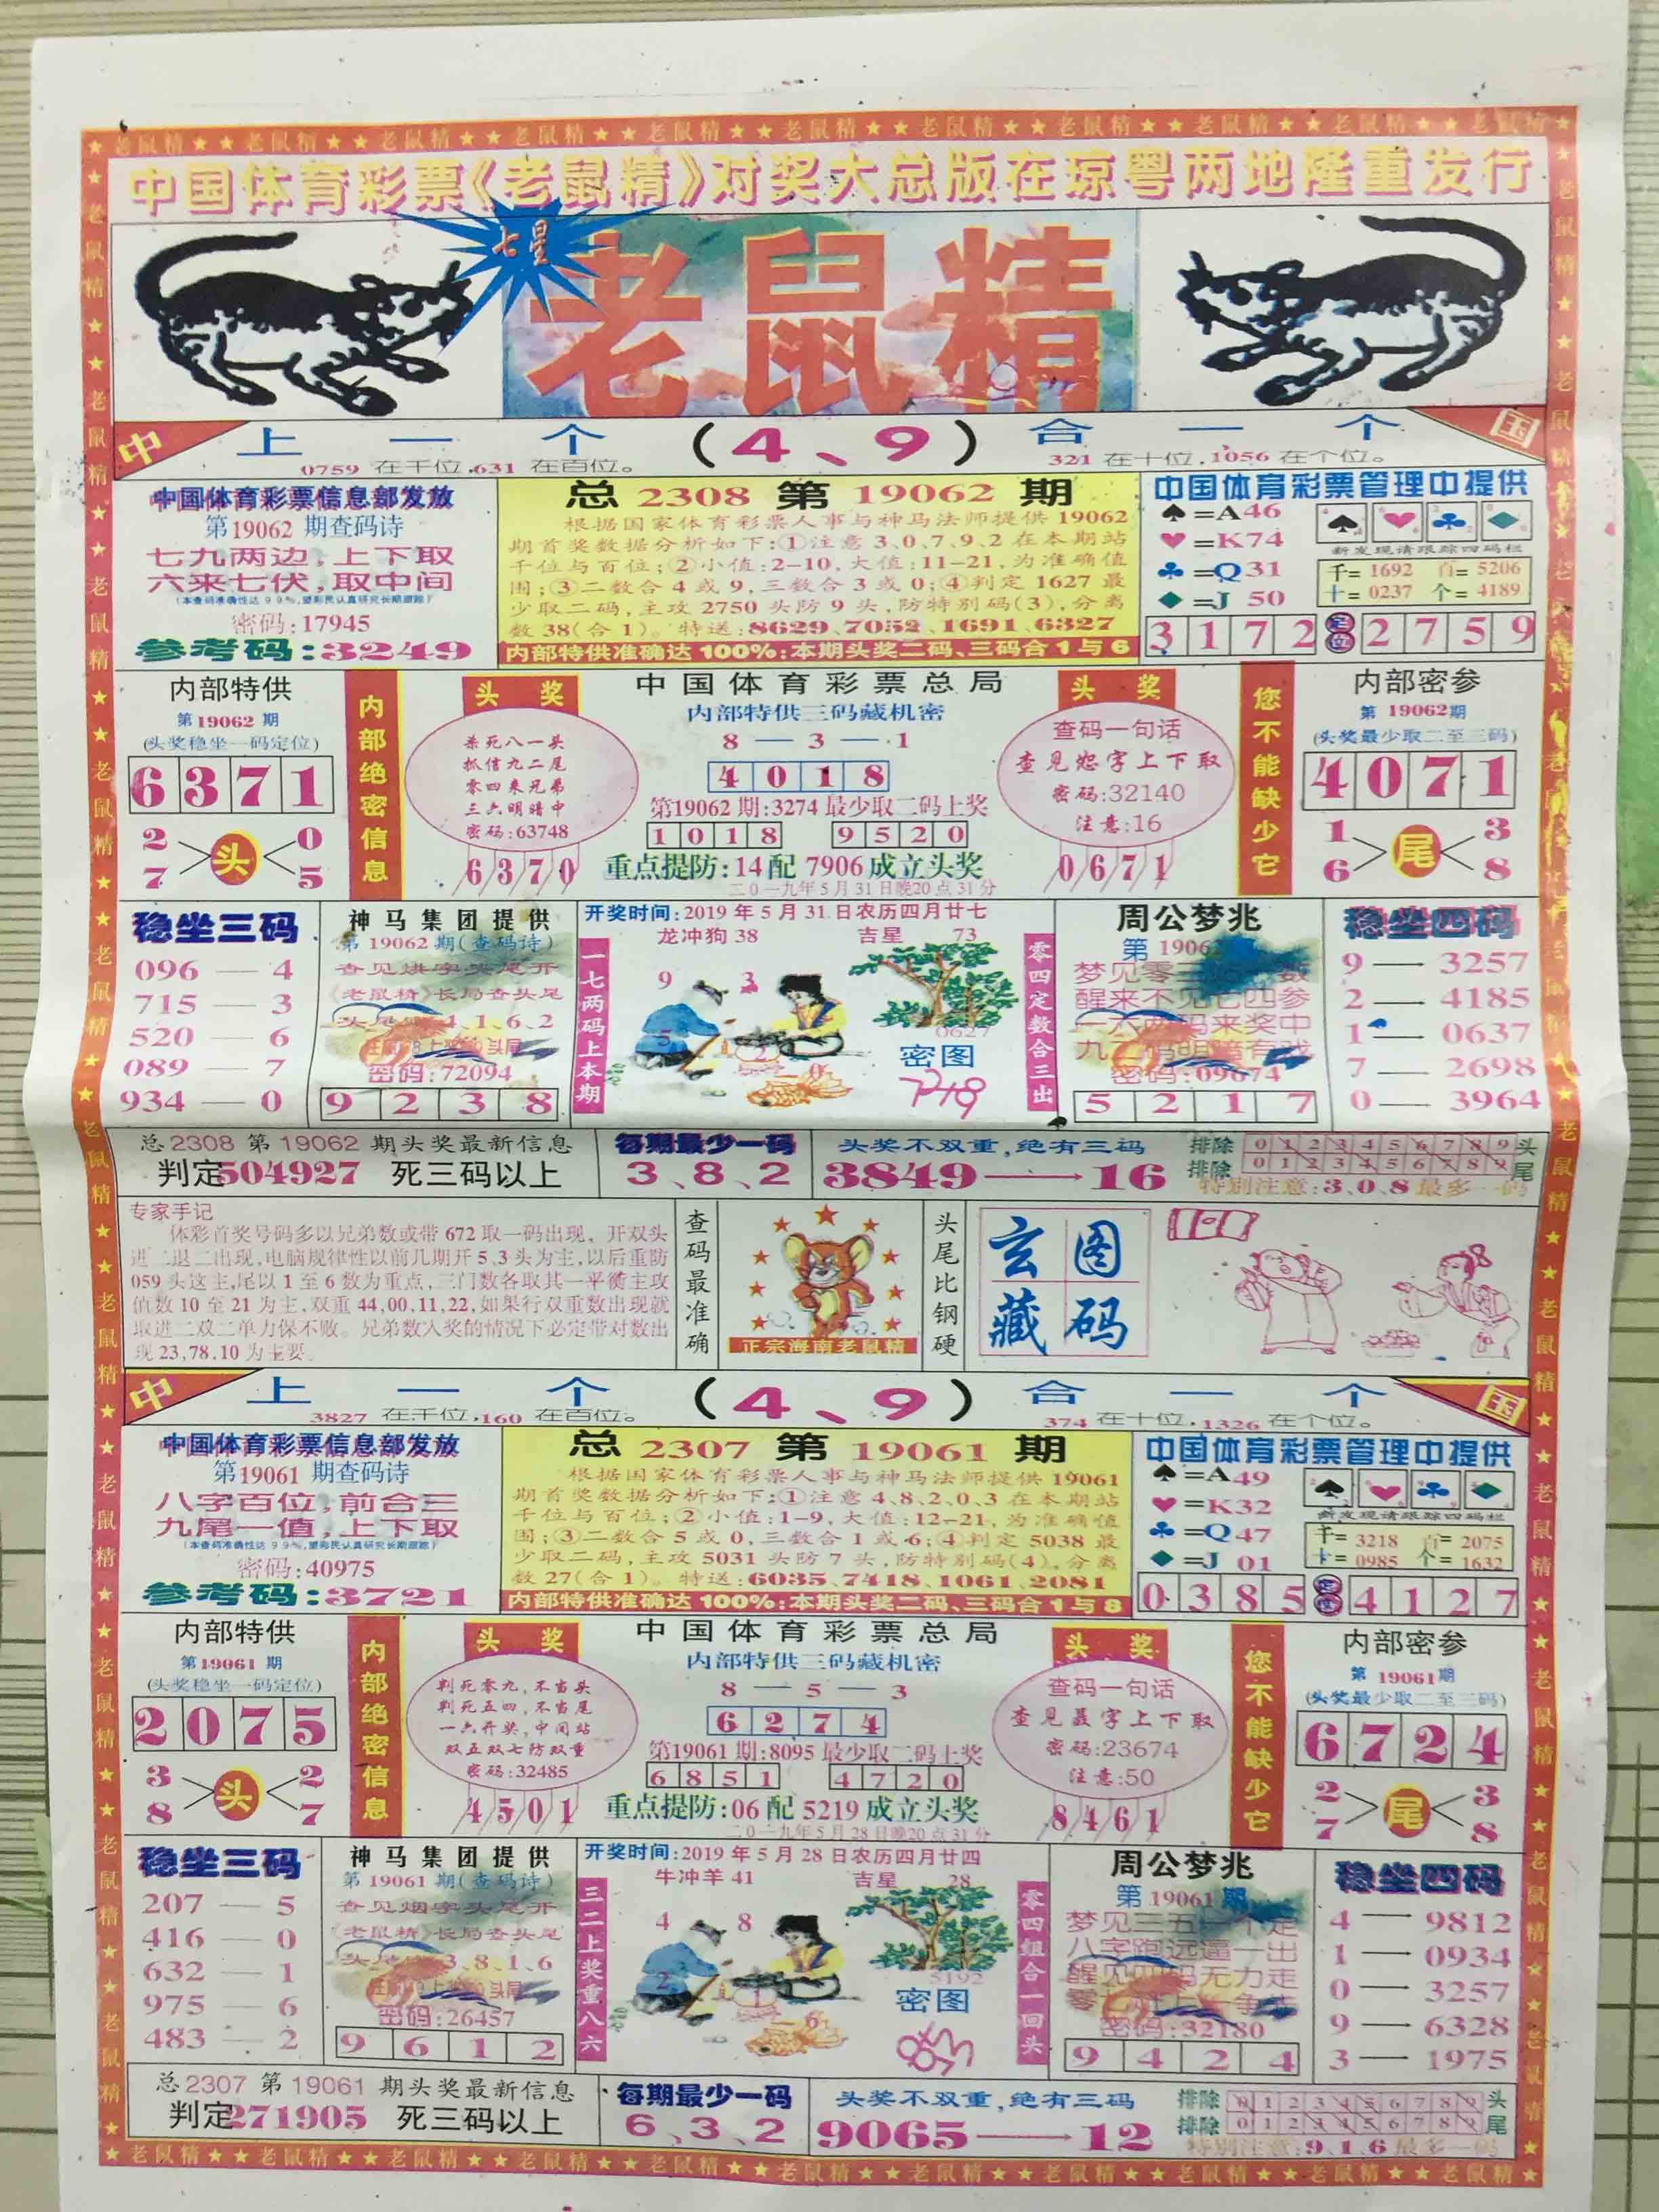 中国体育彩票《老鼠精》对奖大总版在琼粤两地隆重发行
七星
老鼠精
中 上一个(4、9)合一个 国
0759 在千位,631 在百位。 321 在十位,1056 在个位。
中国体育彩票信息部发放
第19062 期查码诗
七九两边,上下取
六来七伏,取中间
(本查码准确性达99%,望彩民认真研究长期跟踪)
密码:17945
参考码:3249
总 2308 第 19062 期
根据国家体育彩票人事与神马法师提供 19062
期首奖数据分析如下:①注意 3、0、7、9、2 在本期站
千位与百位;②小值:2-10,大值:11-21,为准确值
围;③二数合 4 或 9,三数合 3 或 0;④判定 1627 最
少取二码,主攻 2750 头防 9 头,防特别码(3),分离
数 38(合 1)。特送:8629、7052、1691、6327
内部特供准确达 100%:本期头奖二码、三码合 1 与 6
中国体育彩票管理中提供
♠=A46
♥=K74
♣=Q31
♦=J 50
新发现请跟踪四码栏
千= 1692 百= 5206
十= 0237 个= 4189
3 1 7 2 定位 2 7 5 9
内部特供
第19062 期
(头奖稳坐一码定位)
6 3 7 1
2 0
头
7 5
内部绝密信息
头 奖
杀死八一头
抓信九二尾
零四来兄弟
三六明暗中
密码:63748
6 3 7 0
中国体育彩票总局
内部特供三码藏机密
8 — 3 — 1
4 0 1 8
第19062 期:3274 最少取二码上奖
1 0 1 8 9 5 2 0
重点提防:14 配 7906 成立头奖
二0一九年5月31日晚20点31分
头 奖
查码一句话
查见怨字上下取
密码:32140
注意:16
0 6 7 1
您不能缺少它
内部密参
第 19062期
(头奖最少取二至三码)
4 0 7 1
1 3
尾
6 8
稳坐三码
096 — 4
715 — 3
520 — 6
089 — 7
934 — 0
神马集团提供
第 19062 期(查码诗)
查见烘字头尾开
《老鼠精》长局查头尾
4、1、6、2
密码:72094
9 2 3 8
开奖时间:2019 年 5 月 31 日农历四月廿七
龙冲狗 38 吉星 73
一七两码上本期
9 3
5
2
0
0627
密图
零四定数合三出
周公梦兆
第 1906
梦见零
醒来不见它四参
一六两码来奖中
密码:09674
5 2 1 7
稳坐四码
9 — 3257
2 — 4185
1 — 0637
7 — 2698
0 — 3964
总2308 第 19062 期头奖最新信息
判定504927 死三码以上
每期最少一码
3、8、2
头奖不双重,绝有三码
3849——16
排除 0 1 2 3 4 5 6 7 8 9 头
排除 0 1 2 3 4 5 6 7 8 9 尾
特别注意:3、0、8 最多一码
专家手记
体彩首奖号码多以兄弟数或带 672 取一码出现, 开双头
进二退二出现,电脑规律性以前几期开 5、3 头为主,以后重防
059 头这主,尾以 1 至 6 数为重点,三门数各取其一平衡主攻
值数 10 至 21 为主,双重 44,00,11,22,如果行双重数出现就
取进二双二单力保不败。兄弟数入奖的情况下必定带对数出
现 23,78,10 为主要。
查码最准确
正宗海南老鼠精
头尾比钢硬
玄图
藏码
中 上一个(4、9)合一个 国
3827 在千位,160 在百位。 374 在十位,1326 在个位。
中国体育彩票信息部发放
第19061 期查码诗
八字百位,前合三
九尾一值,上下取
(本查码准确性达99%,望彩民认真研究长期跟踪)
密码:40975
参考码:3721
总 2307 第 19061 期
根据国家体育彩票人事与神马法师提供 19061
期首奖数据分析如下:①注意 4、8、2、0、3 在本期站
千位与百位;②小值:1-9,大值:12-21,为准确值
围;③二数合 5 或 0,三数合 1 或 6;④判定 5038 最
少取二码,主攻 5031 头防 7 头,防特别码(4),分离
数 27(合 1)。特送:6035、7418、1061、2081
内部特供准确达 100%:本期头奖二码、三码合 1 与 8
中国体育彩票管理中提供
♠=A49
♥=K32
♣=Q47
♦=J 01
新发现请跟踪四码栏
千= 3218 百= 2075
十= 0985 个= 1632
0 3 8 5 定位 4 1 2 7
内部特供
第19061 期
(头奖稳坐一码定位)
2 0 7 5
3 2
头
8 7
内部绝密信息
头 奖
判死零九,不当头
判死五四,不当尾
一六开奖,中间站
双五双七防双重
密码:32485
4 5 0 1
中国体育彩票总局
内部特供三码藏机密
8 — 5 — 3
6 2 7 4
第19061 期:8095 最少取二码上奖
6 8 5 1 4 7 2 0
重点提防:06 配 5219 成立头奖
二0一九年5月28日晚20点31分
头 奖
查码一句话
查见聂字上下取
密码:23674
注意:50
8 4 6 1
您不能缺少它
内部密参
第 19061期
(头奖最少取二至三码)
6 7 2 4
2 3
尾
7 8
稳坐三码
207 — 5
416 — 0
632 — 1
975 — 6
483 — 2
神马集团提供
第 19061 期(查码诗)
查见烟字头尾开
《老鼠精》长局查头尾
3、8、1、6
密码:26457
9 6 1 2
开奖时间:2019 年 5 月 28 日农历四月廿四
牛冲羊 41 吉星 28
三二上奖重八六
4 8
2
1
6
5192
密图
零四组合一回头
周公梦兆
第 19061 期
梦见三五一个走
八字跑远逼一出
醒见四码无力走
密码:32180
9 4 2 4
稳坐四码
4 — 9812
1 — 0934
0 — 3257
9 — 6328
3 — 1975
总2307 第 19061 期头奖最新信息
判定271905 死三码以上
每期最少一码
6、3、2
头奖不双重,绝有三码
9065——12
排除 0 1 2 3 4 5 6 7 8 9 头
排除 0 1 2 3 4 5 6 7 8 9 尾
特别注意:9、1、6 最多一码